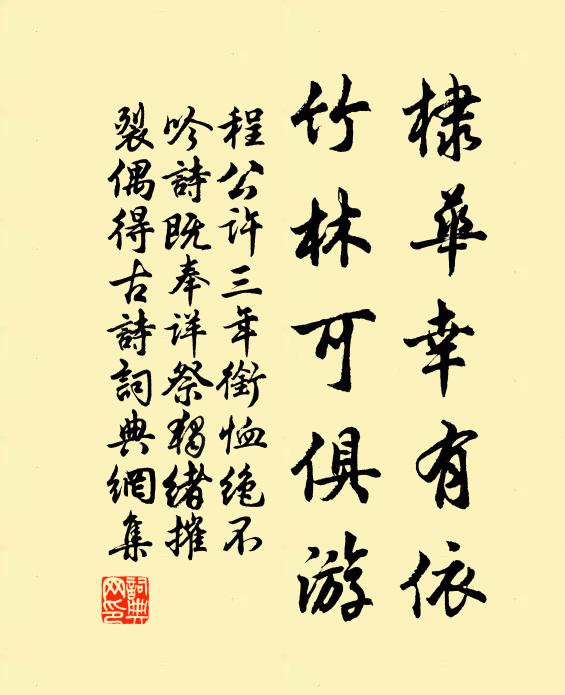 棣華幸有依
竹林可俱游
程公许三年銜恤绝不
吟詩既奉详祭猶緒摧
裂偶得古詩詞典網集
詞典